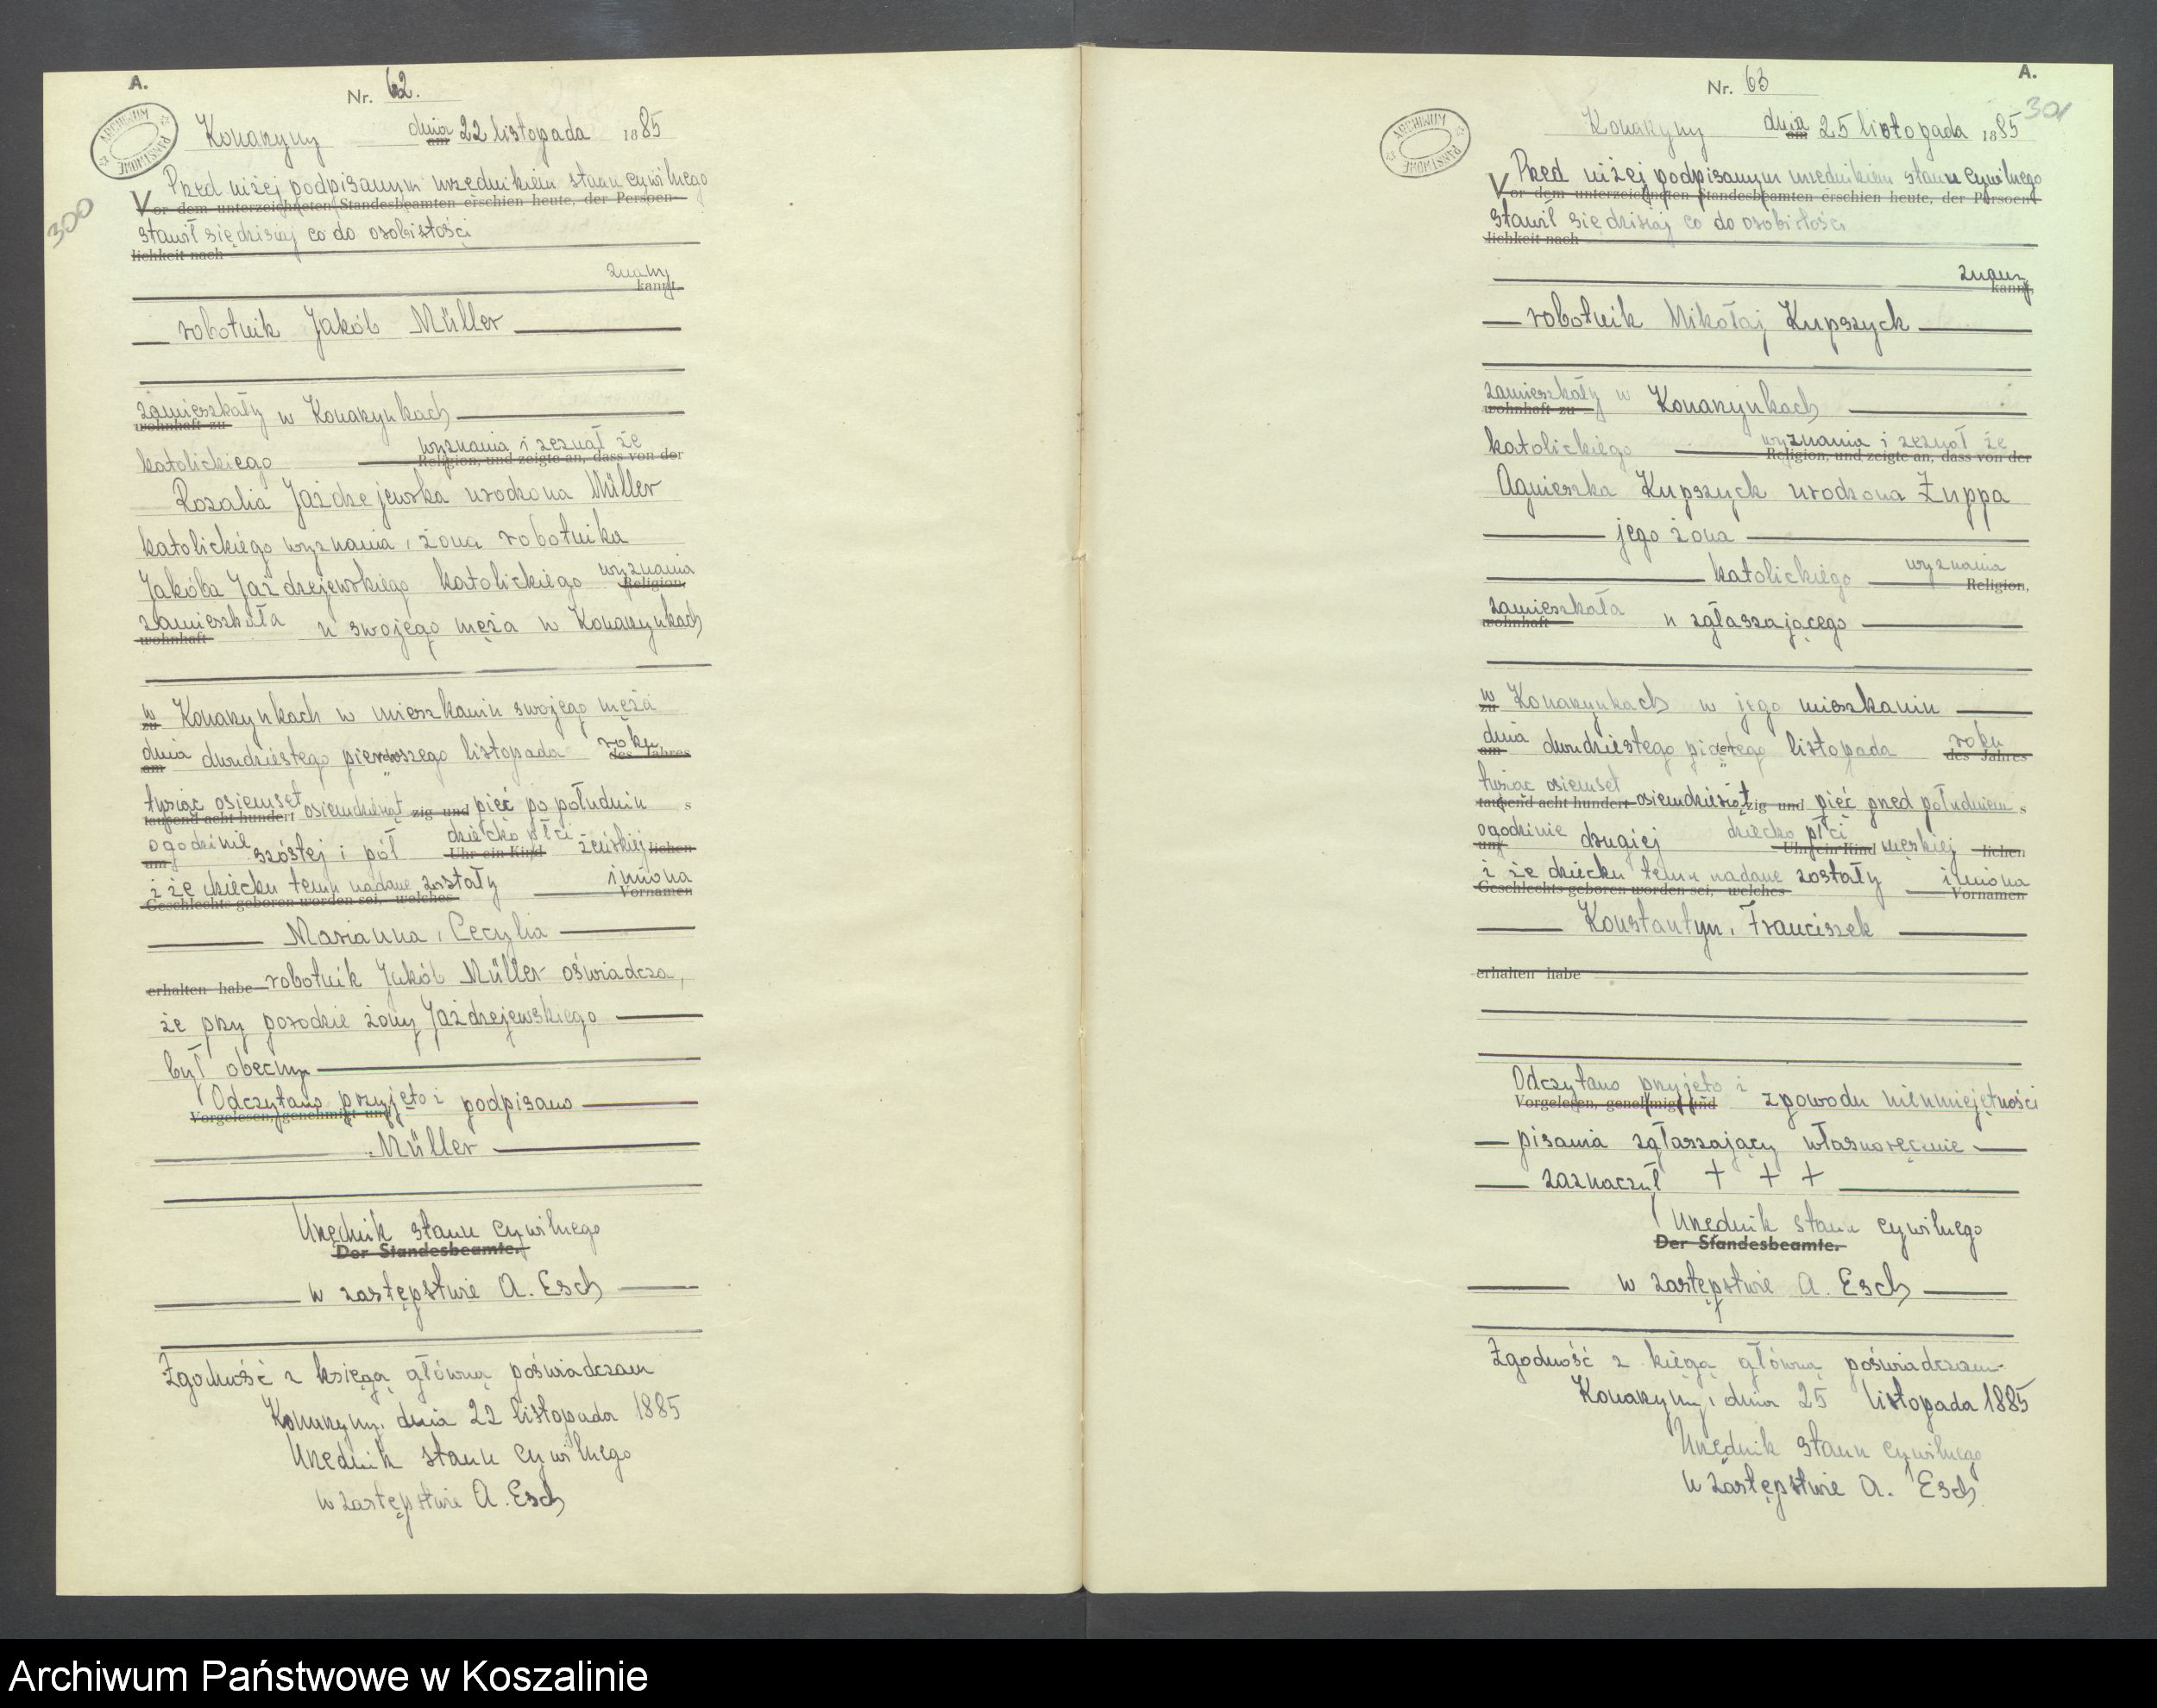 A.
Nr. 62.
ARCHIWUM PAŃSTWOWE
Konarzyny dnia am 22 listopada 1885
300
Przed niżej podpisanym urzednikiem stanu cywilnego
Vor dem unterzeichneten Standesbeamten erschien heute, der Persoen-
stawił się dzisiaj co do osobistości
lichkeit nach
znany
kannt.
robotnik Jakób Müller
zamieszkały w Konarzynkach
wohnhaft zu
wyznania i zeznał że
katolickiego Religion, und zeigte an, dass von der
Rozalia Jażdzejewska urodzona Müller
katolickiego wyznania, żona robotnika
Jakóba Jażdzejewskiego katolickiego wyznania
Religion,
zamieszkała u swojego męża w Konarzynkach
wohnhaft
w Konarzynkach w mieszkaniu swojego męża
zu
dnia dwudziestego pierwszego listopada roku
am des Jahres
tysiąc osiemset osiemdziesiąt zig und pięć po południu s
tausend acht hundert
ogodzinie szóstej i pół dziecko płci żeńskiej lichen
um Uhr ein Kind
i że dziecku temu nadane zostały imiona
Geschlechts geboren worden sei, welches Vornamen
Marianna, Cecylia
erhalten habe robotnik Jakób Müller oświadcza,
że przy porodzie żony Jażdzejewskiego
był obecny
Odczytano przyjęto i podpisano
Vorgelesen, genehmigt und
Müller
Urzędnik stanu cywilnego
Der Standesbeamte.
w zastępstwie A. Esch
Zgodność z księgą główną poświadczam
Konarzyny, dnia 22 listopada 1885
Urzędnik stanu cywilnego
w zastępstwie A. Esch
A.
Nr. 63
301
ARCHIWUM PAŃSTWOWE
Konarzyny dnia am 25 listopada 1885
Przed niżej podpisanym urzednikiem stanu cywilnego
Vor dem unterzeichneten Standesbeamten erschien heute, der Persoen-
stawił się dzisiaj co do osobistości
lichkeit nach
znany
kannt,
robotnik Mikołaj Kupszyck
zamieszkały w Konarzynkach
wohnhaft zu
wyznania i zeznał że
katolickiego Religion, und zeigte an, dass von der
Agnieszka Kupszyck urodzona Żuppa
jego żona
katolickiego wyznania
Religion,
zamieszkała u zgłaszającego
wohnhaft
w Konarzynkach w jego mieszkaniu
zu
dnia dwudziestego piątego listopada roku
am des Jahres
tysiąc osiemset osiemdziesiąt zig und pięć przed południem s
tausend acht hundert
ogodzinie drugiej dziecko płci męskiej lichen
um Uhr ein Kind
i że dziecku temu nadane zostały imiona
Geschlechts geboren worden sei, welches Vornamen
Konstantyn, Franciszek
erhalten habe
Odczytano przyjęto i z powodu nieumiejętności
Vorgelesen, genehmigt und
pisania zgłaszający własnoręcznie
zaznaczył + + +
Urzędnik stanu cywilnego
Der Standesbeamte.
w zastępstwie A. Esch
Zgodność z kięgą główną poświadczam
Konarzyny, dnia 25 listopada 1885
Urzędnik stanu cywilnego
w zastępstwie A. Esch
Archiwum Państwowe w Koszalinie